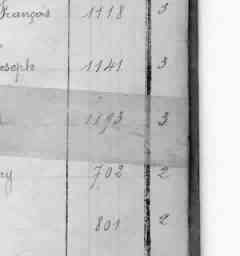 François 1118 3
oseph 1141 3
1193 3
ay 702 2
801 2